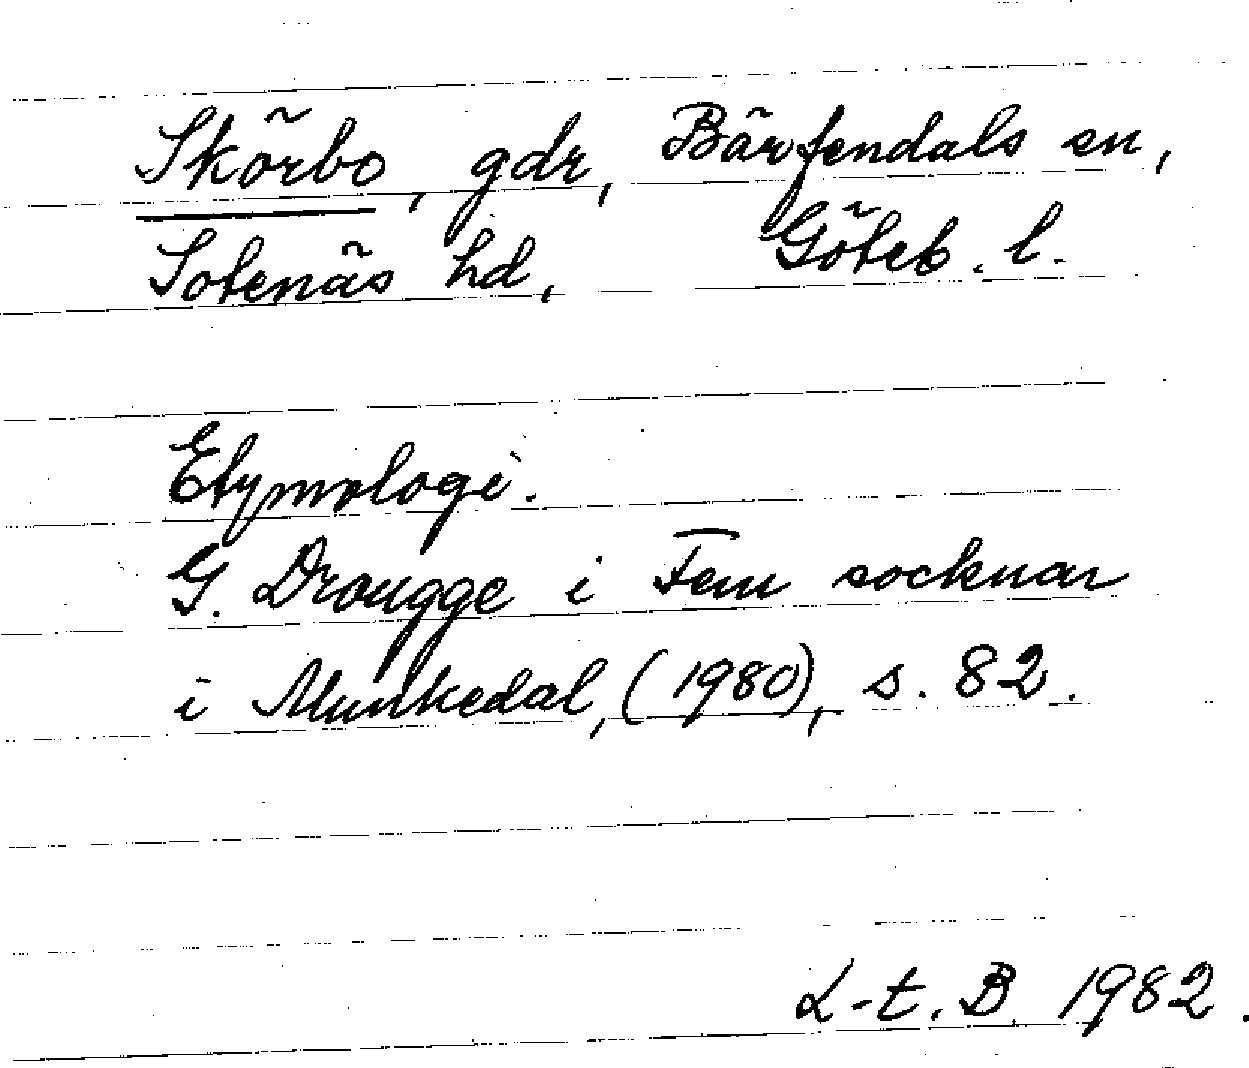 Skörbo, gdr, Bärfendals sn,
Sotenäs hd, Göteb. l.
Etymologi.
G. Drougge i Fem socknar
i Munkedal, (1980), s. 82.
L-t. B. 1982.